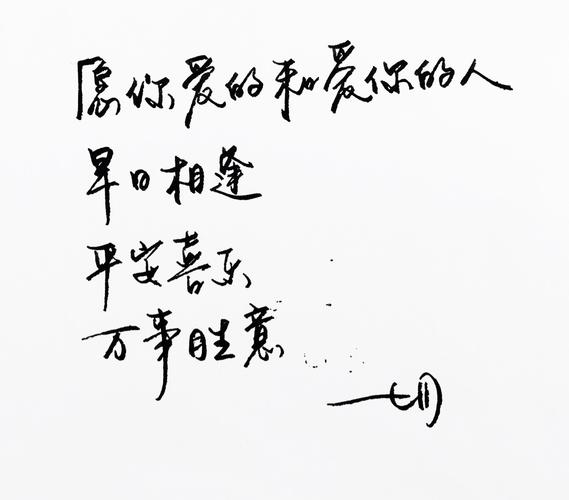 愿你爱的和爱你的人
早日相逢
平安喜乐
万事胜意